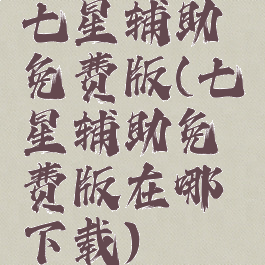 七星辅助
免费版(七
星辅助免
费版在哪
下载)